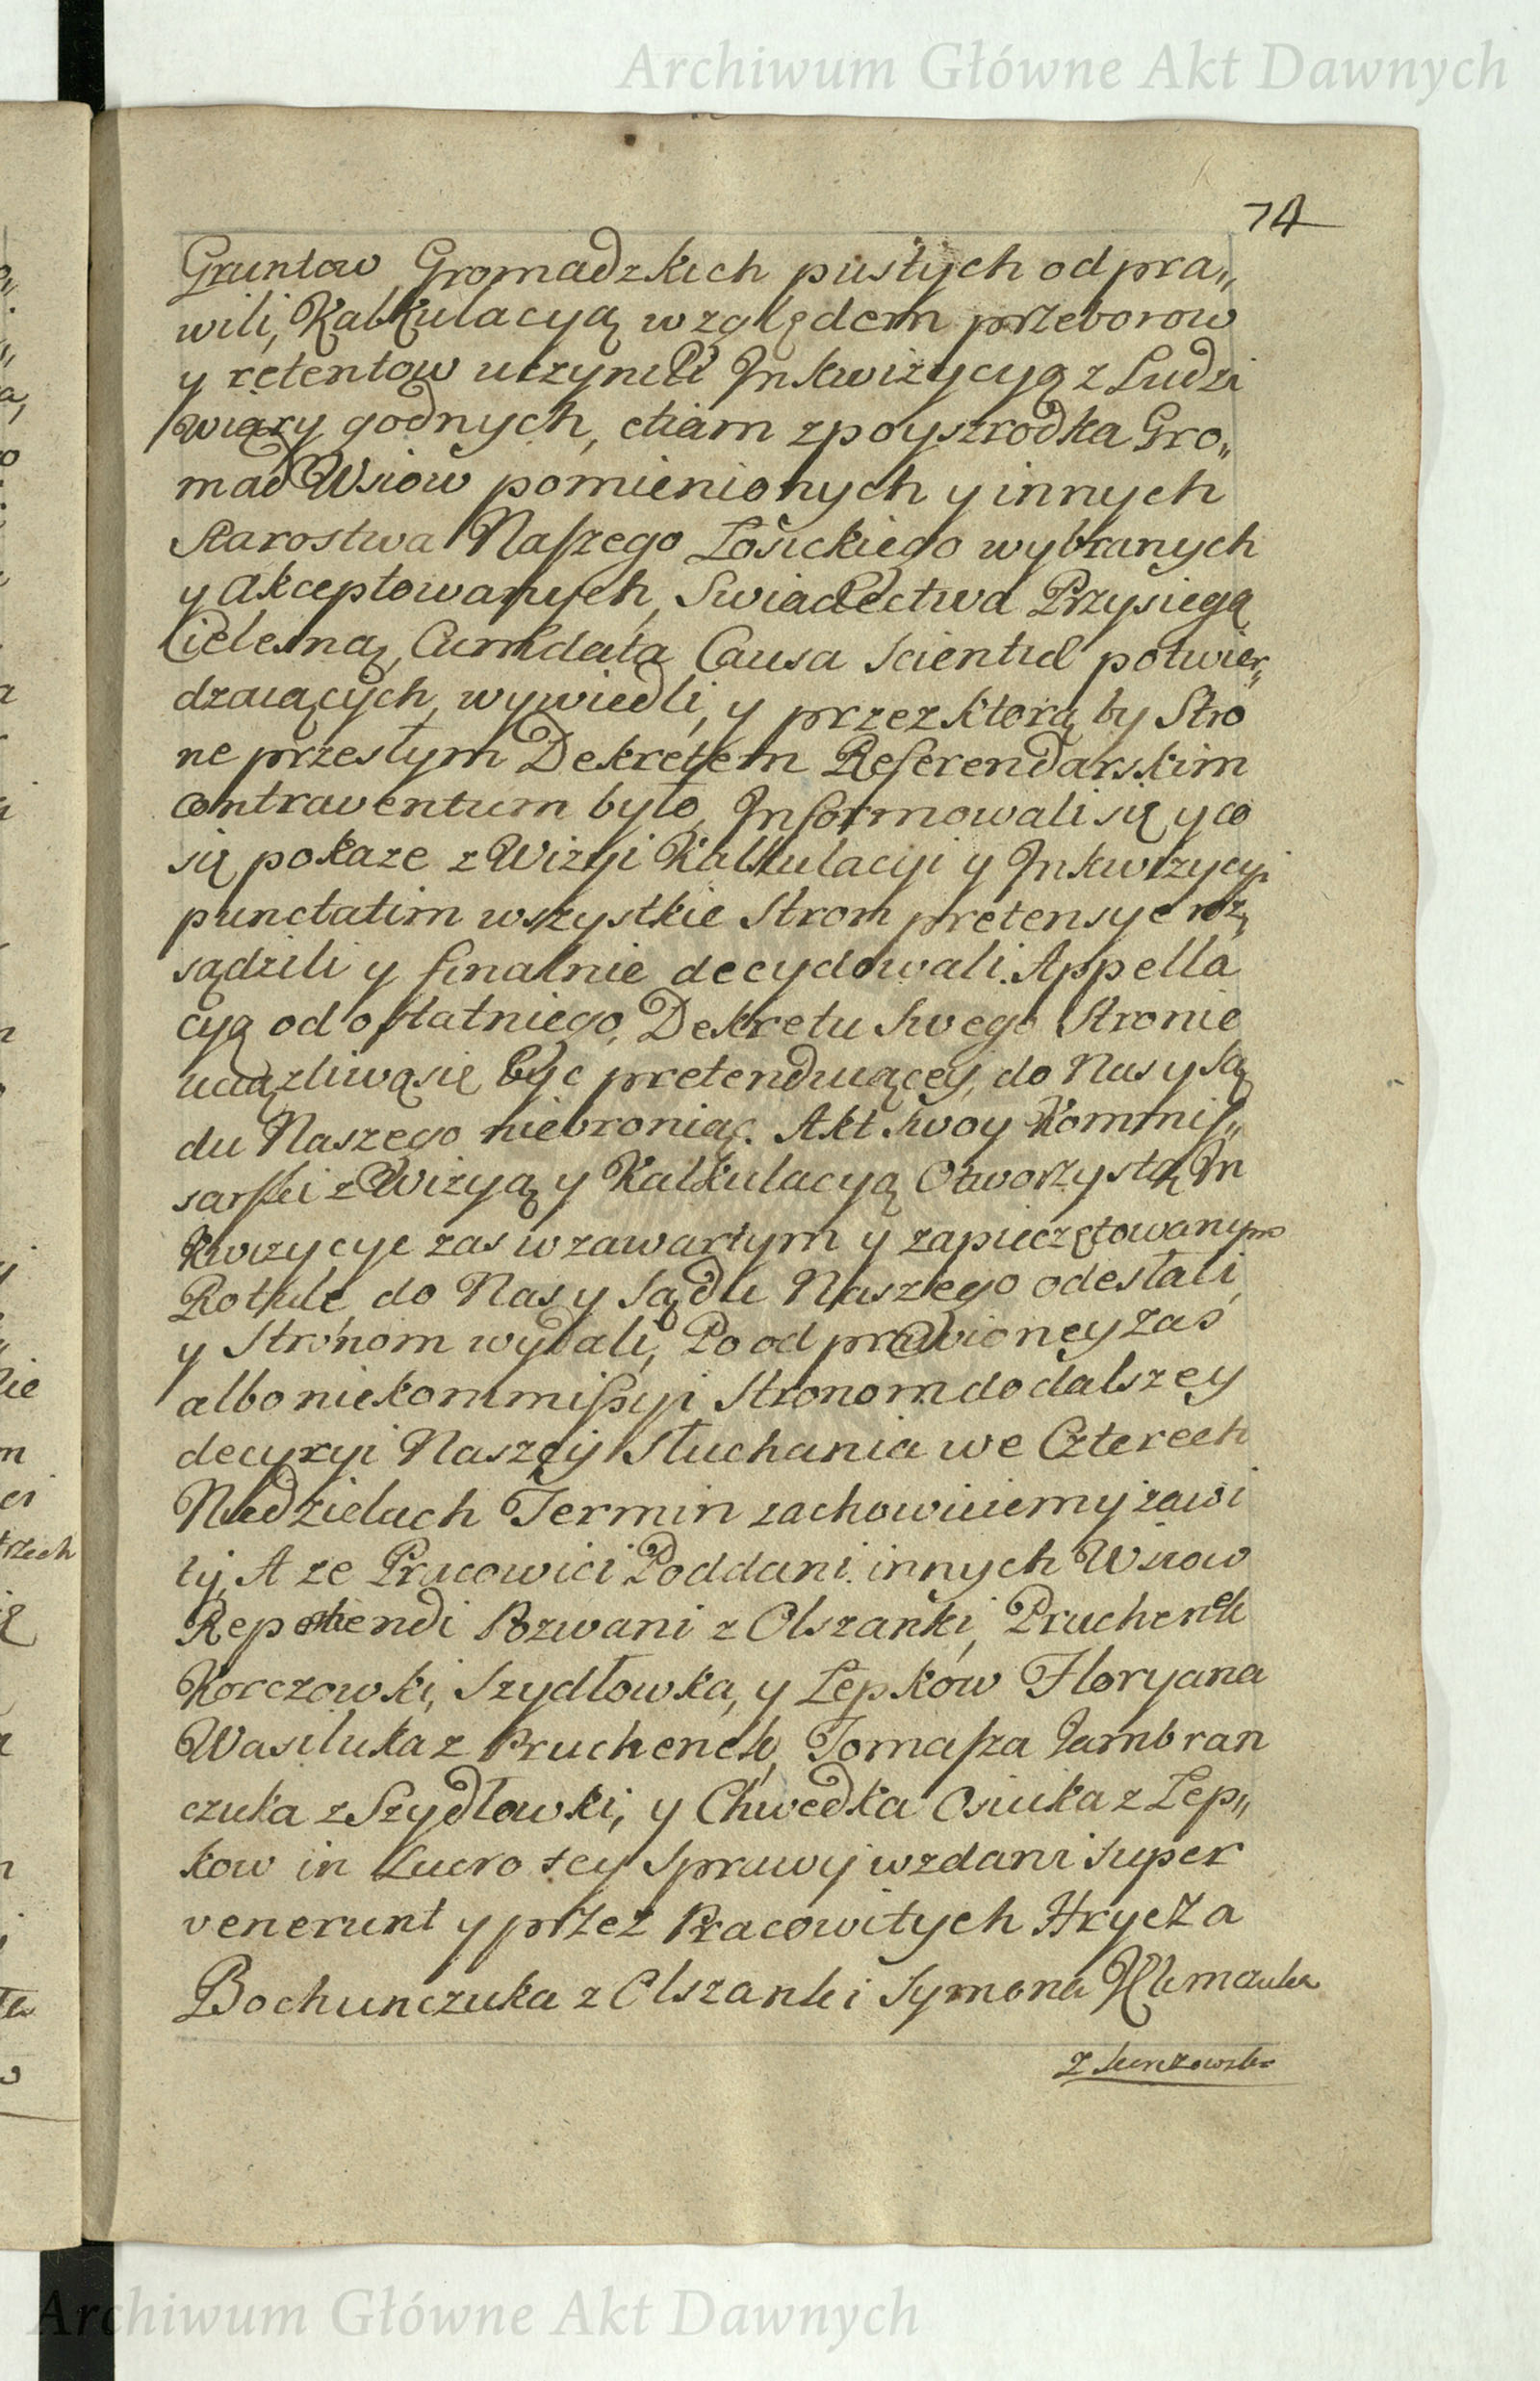 Archiwum Główne Akt Dawnych
74
Gruntow Gromadzkich pustych odpra„
wili, Kalkulacyą względem przeborow
y retentow uczynili Inkwizycyą z Ludzi
wiary godnych, etiam zpoyszrodka Gro„
mad Wsiow pomienionych y innych
Starostwa Naszego Łosickiego wybranych
y akceptowanych, Swiadectwa Przysięgą
Cielesną, Cum data Causa Scientiæ potwier„
dzaiących, wywiedli, y przez ktorą by Stro
ne przeszłym Dekretem Referendarskim
contraventum było, Informowali się y co
się pokaze z Wizyi Kalkulacyi y Inkwizycyi
punctatim wszystkie Stron pretensye roz„
sądzili y finalnie decydowali. Appella
cyą od ostatniego, Dekretu swego Stronie
uciązliwą się być pretenduiącey, do Nas y Są
du Naszego niebroniąc. Akt swoy Kommis„
sarski z Wizyą y Kalkulacyą Otworzystą In
kwizycye zas w zawartym y zapieczętowanym
Rotule, do Nas y Sądu Naszego odesłali,
y Stronom wydali, Po odprawioney zaś
albo nie kommissyi Stronom do dalszey
decyzyi Naszey Słuchania we Czterech
Niedzielach Termin zachowuiemy zawi
ty, A ze Pracowici Poddani innych Wsiow
Pozwani z Olszanki, Pruchenek
Korczowki, Szydłowka, y Łepków Floryana
Wasiluka z Pruchenek, Tomasza Jambran
czuka z Szydłowki, y Chwedka Osiuka z Łep„
kow in Lucro tey Sprawy wzdani super
venerunt y przez Pracowitych Hrycza
Bochunczuka z Olszanki Symona Klimczuka
z Kurczowki
Archiwum Główne Akt Dawnych